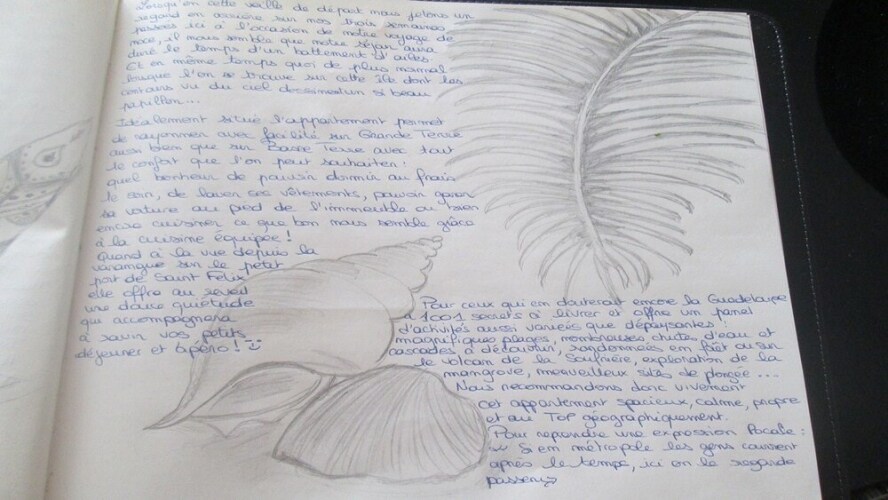 Lorsqu'en cette veille de départ nous jetons un
regard en arrière sur nos trois semaines
passées ici à l'occasion de notre voyage de
noce, il nous semble que notre séjour aura
duré le temps d'un battement d'ailes.
Et en même temps quoi de plus normal
lorsque l'on se trouve sur cette île dont les
contours vu du ciel dessinent un si beau
papillon...
Idéalement situé l'appartement permet
de rayonner avec facilité sur Grande Terre
aussi bien que sur Basse Terre avec tout
le confort que l'on peut souhaiter :
quel bonheur de pouvoir dormir au frais
le soir, de laver ses vêtements, pouvoir garer
sa voiture au pied de l'immeuble ou bien
encore cuisiner ce que bon nous semble grâce
à la cuisine équipée !
Quand à la vue depuis la
varangue sur le petit
port de Saint Félix
elle offre au réveil
une douce quiétude
qui accompagnera
à ravir vos petits
déjeuner et apéro ! :)
Pour ceux qui en douterait encore la Guadeloupe
a 1001 secrets à livrer et offre un panel
d'activités aussi variées que dépaysantes :
magnifiques plages, nombreuses chutes d'eau et
cascades à découvrir, randonnées en forêt ou sur
le volcan de la Soufrière, exploration de la
mangrove, merveilleux sites de plongée ...
Nous recommandons donc vivement
cet appartement spacieux, calme, propre
et au TOP géographiquement.
Pour reprendre une expression locale :
« Si en métropole les gens courent
après le temps, ici on le regarde
passer »